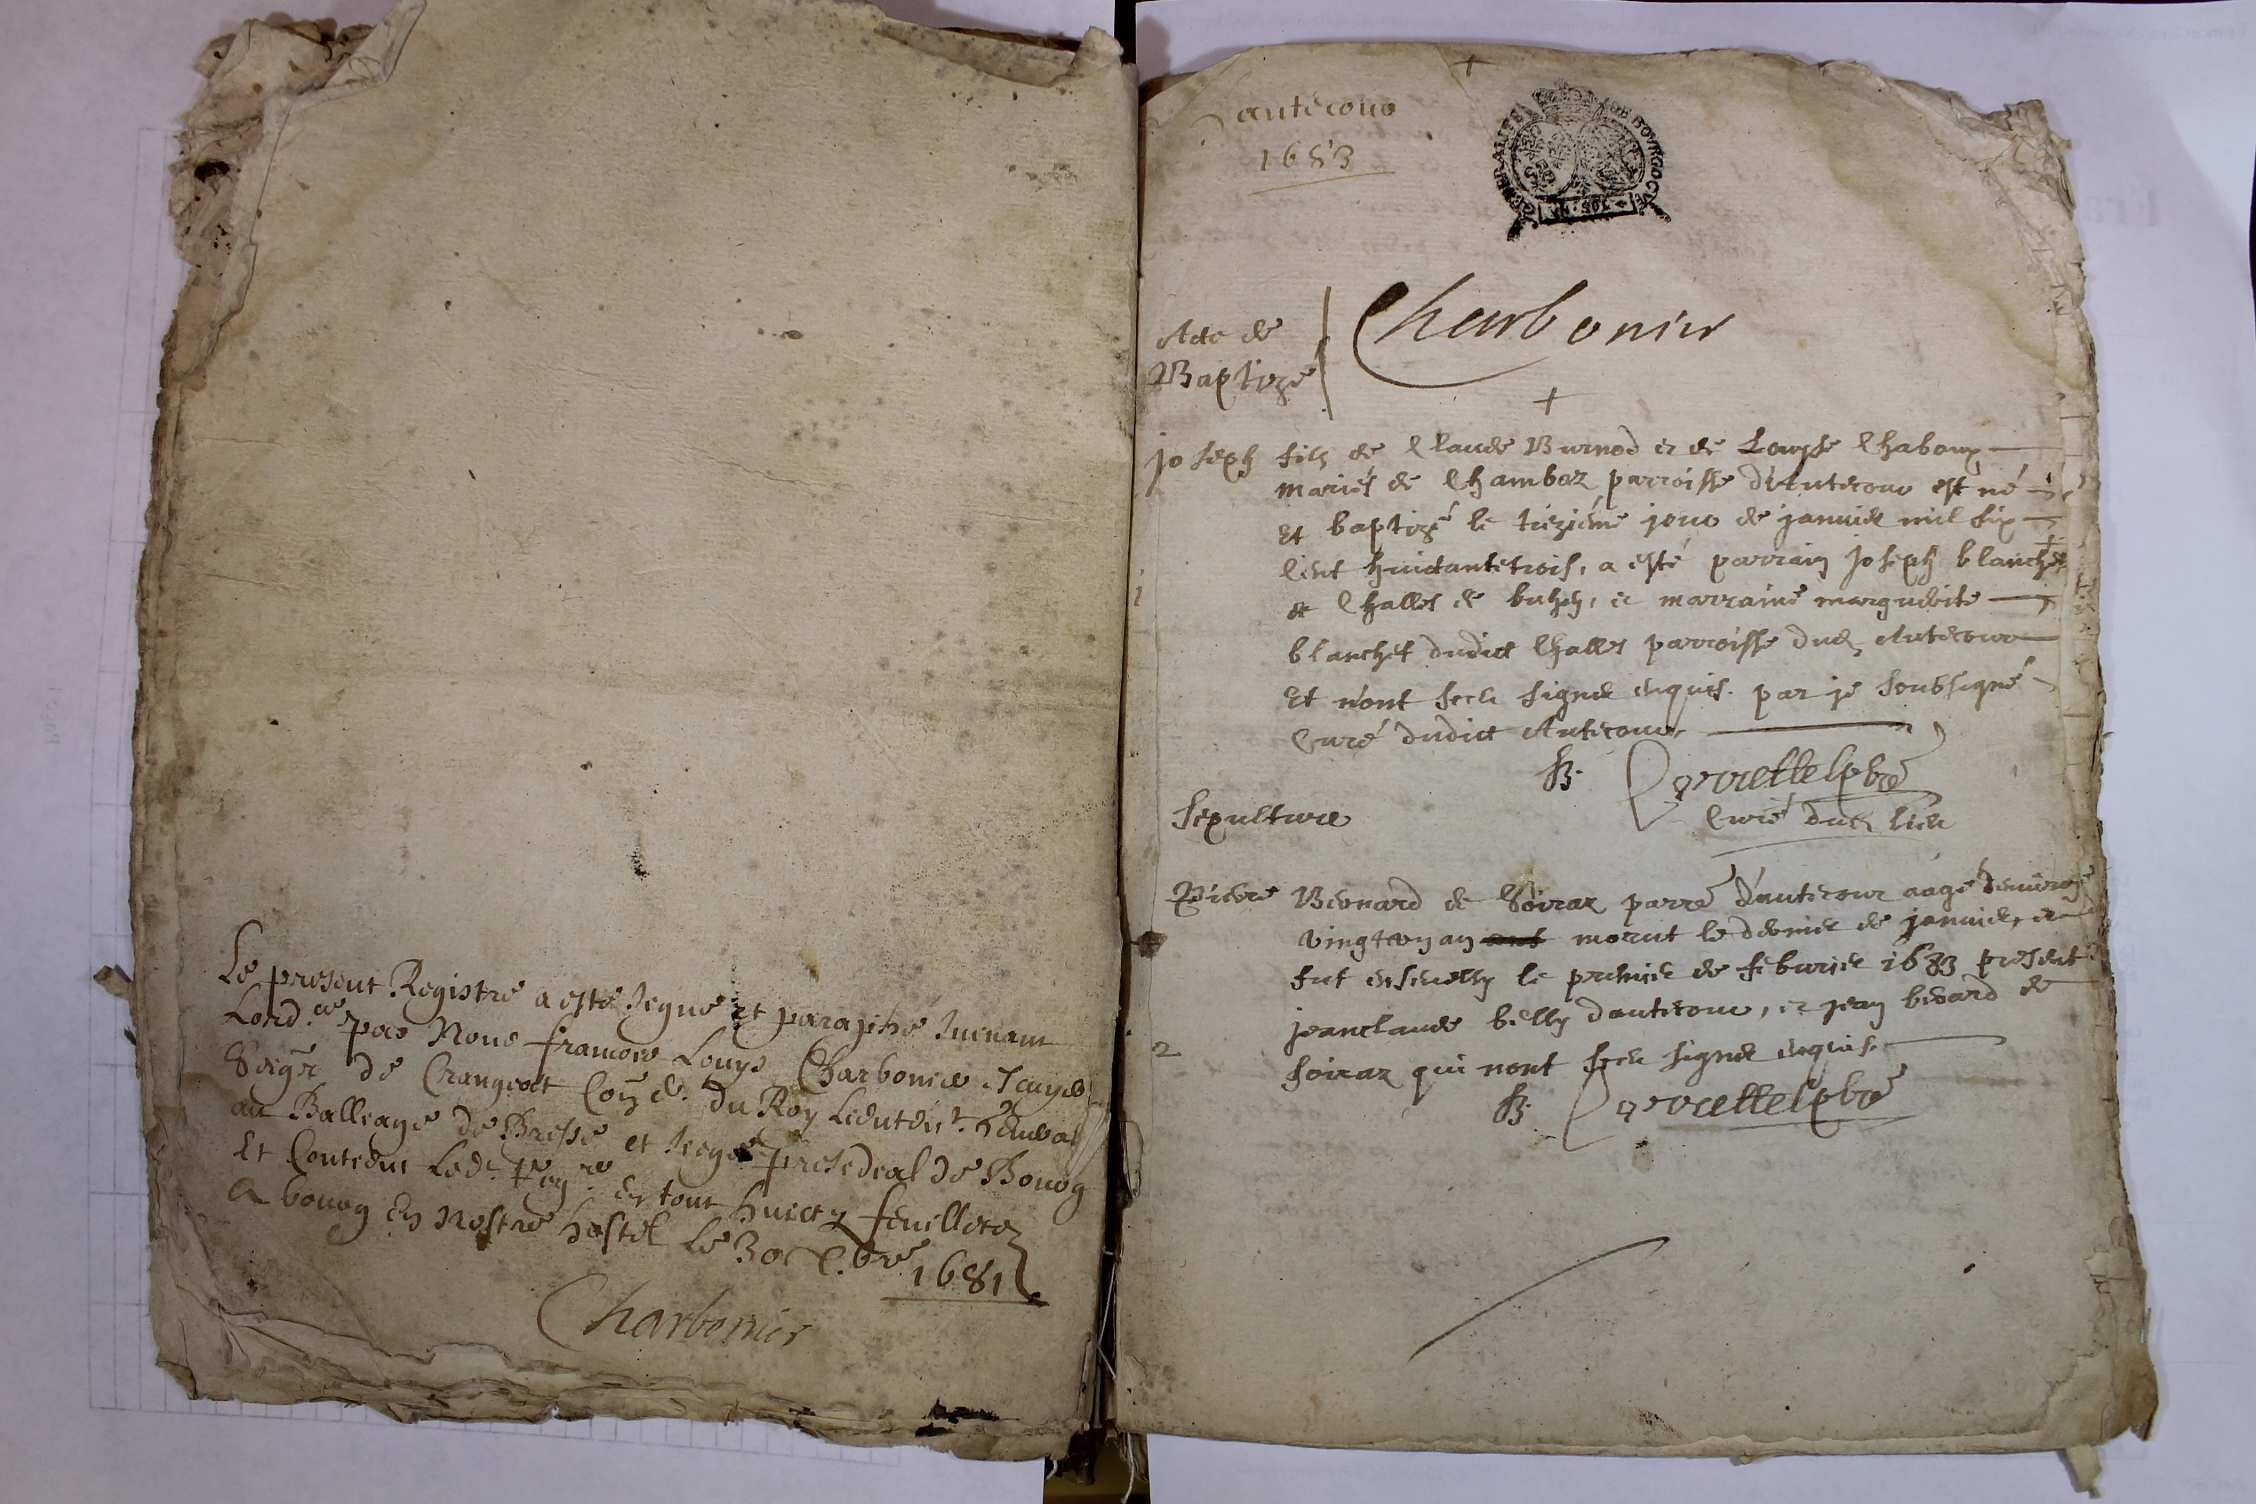 Le present Registre a esté signe et paraphé suivant
Lord.ce par Nous francois Louys Charbonier Escuyer
Seigr de Crangeat Conser du Roy Lieuten.t General
au Balliage de Bresse et siege presedeal de Bourg
Et Contient Led. Reg.re en tout huict feuillets
A bourg En Nostre hostel Le 30 X.bre 1681
Charbonier
antecour
1683
GENERALITE DE BOURGOGNE
UN SOL
Acte de
Baptize
Charbonier
Joseph fils de Claude Burnod et de Louyse Chaboux
mariés de Chamboz parroisse d'Antecour est né
Et baptizé le tiezième jour de janvier mil six
Cent huictantetrois, a esté parrain Joseph blanchet
de Challes de buhen, et marraine marguerite
blanchet dudict Challes parroisse dud. Antecour
Et n'ont sceu signer enquis. par je soubsigné
Curé dudict Antecour
1
B. Corvettel pbre
Curé dud. lieu
Sepulture
Pierre Bevnard de Soiraz parre d'antecour aagé denviron
vingt un an morut le dernier de janvier, et
fut ensevelly le premier de feburier 1683 present
jeanclaude belly dantecour, et jean berard de
soiraz qui nont sceu signer enquis.
2
B. Corvettel pbre